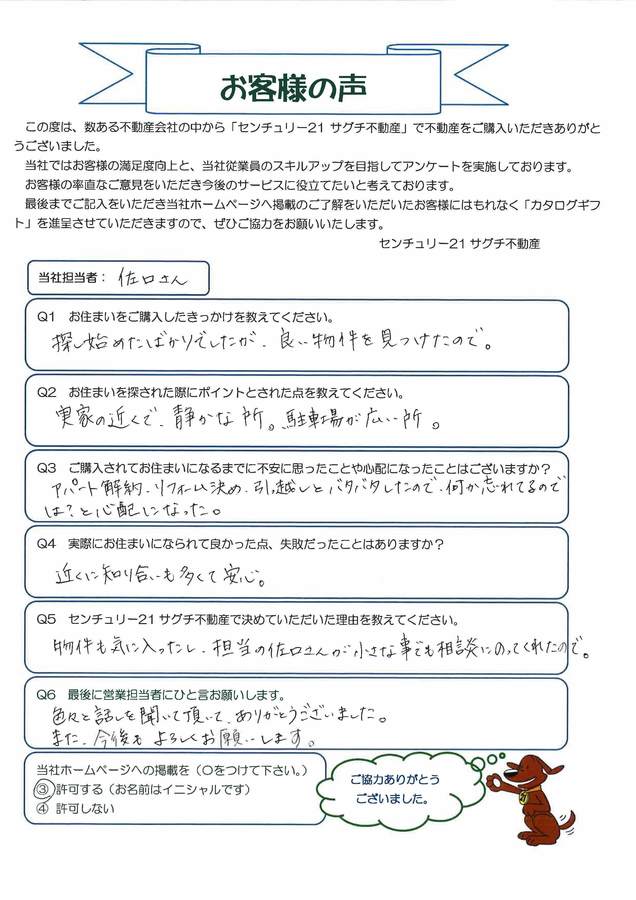 お客様の声
この度は、数ある不動産会社の中から「センチュリー21 サグチ不動産」で不動産をご購入いただきありがと
うございました。
当社ではお客様の満足度向上と、当社従業員のスキルアップを目指してアンケートを実施しております。
お客様の率直なご意見をいただき今後のサービスに役立てたいと考えております。
最後までご記入をいただき当社ホームページへ掲載のご了解をいただいたお客様にはもれなく「カタログギフ
ト」を進呈させていただきますので、ぜひご協力をお願いいたします。
センチュリー21 サグチ不動産
当社担当者： 佐口さん
Q1 お住まいをご購入したきっかけを教えてください。
探し始めたばかりでしたが、良い物件を見つけたので。
Q2 お住まいを探された際にポイントとされた点を教えてください。
実家の近くで、静かな所。駐車場が広い所。
Q3 ご購入されてお住まいになるまでに不安に思ったことや心配になったことはございますか？
アパート解約、リフォーム決め、引越しとバタバタしたので、何か忘れてるので
は？と心配になった。
Q4 実際にお住まいになられて良かった点、失敗だったことはありますか？
近くに知り合いも多くて安心。
Q5 センチュリー21 サグチ不動産で決めていただいた理由を教えてください。
物件も気に入ったし、担当の佐口さんが小さな事でも相談にのってくれたので。
Q6 最後に営業担当者にひと言お願いします。
色々と話しを聞いて頂いて、ありがとうございました。
また、今後もよろしくお願いします。
当社ホームページへの掲載を（〇をつけて下さい。）
③ 許可する（お名前はイニシャルです）
④ 許可しない
ご協力ありがとう
ございました。